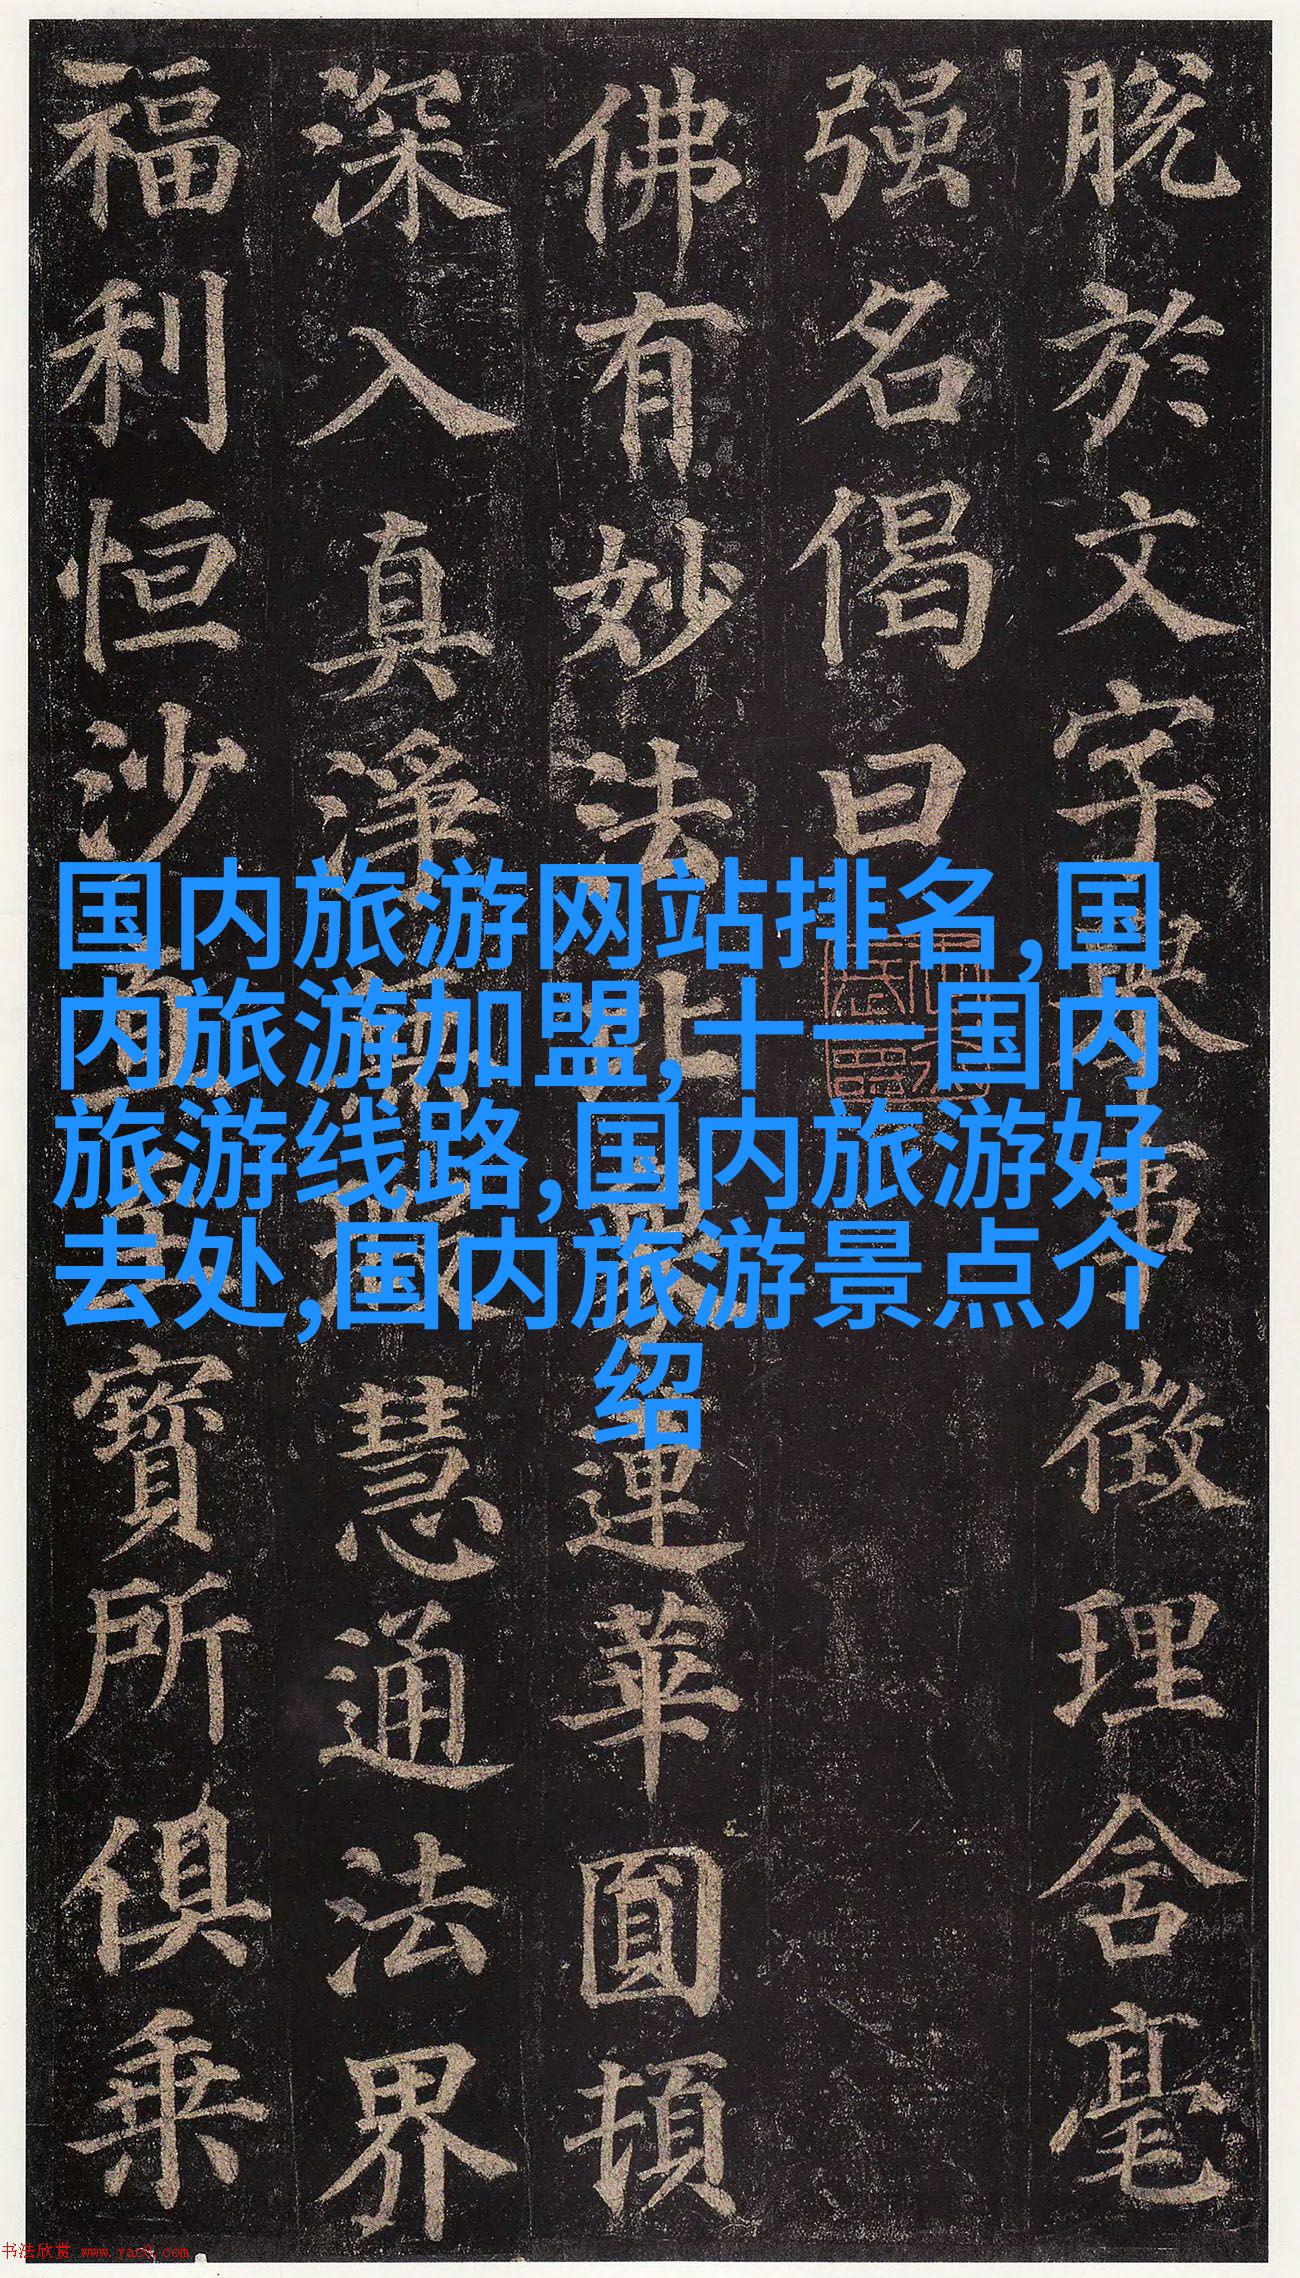 脱於文字舉事徵理含毫
强名偈曰
佛有妙法比象蓮華圓頓
深入真淨無瑕慧通法界
福利恒沙直至寶所俱乘
国内旅游网站排名,国
内旅游加盟,十一国内
旅游线路,国内旅游好
去处,国内旅游景点介
绍
书法欣赏 www.yac8.com